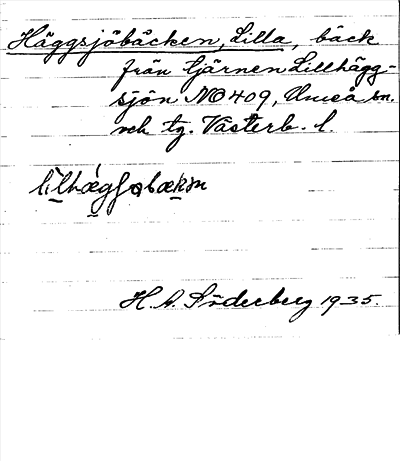 Häggsjöbäcken, Lilla, bäck
från tjärnen Lillhägg-
sjön NO 409, Umeå sn.
och tg. Västerb. l.
H. A. Söderberg 1935.